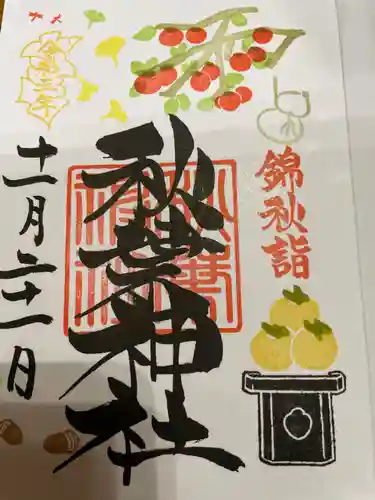 錦秋詣
秋葉神社
秋葉
神社
令和三年
十一月二十一日